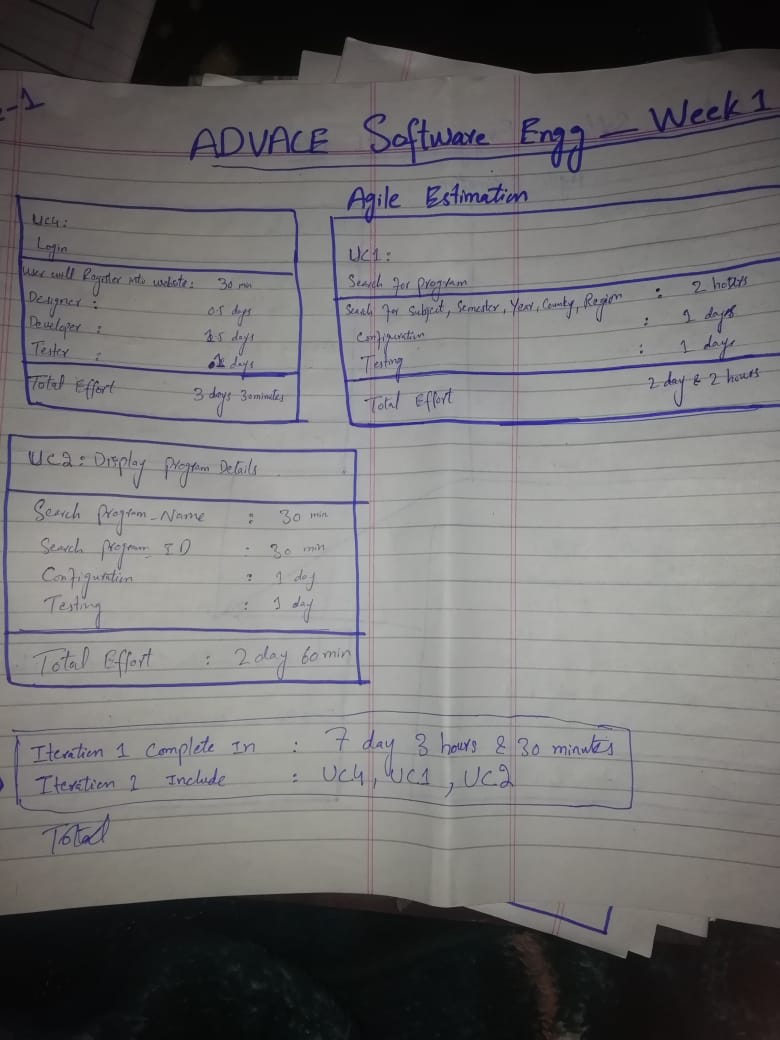 e-1
ADVACE Software Engg — Week 1
Agile Estimation
UC4:
Login
User will Register into website: 30 min
Designer : 0.5 days
Developer : 1.5 days
Tester : 1 days
Total Effort 3 days 30minutes
UC1:
Search for program
Search for Subject, Semester, Year, County, Region : 2 hours
Configuration : 1 days
Testing : 1 days
Total Effort 2 day & 2 hours
UC2: Display program Details
Search program_Name : 30 min
Search program_ID : 30 min
Configuration : 1 day
Testing : 1 day
Total Effort : 2 day 60 min
Iteration 1 Complete In : 7 day 3 hours & 30 minutes
Iteration 1 Include : UC4, UC1, UC2
Total